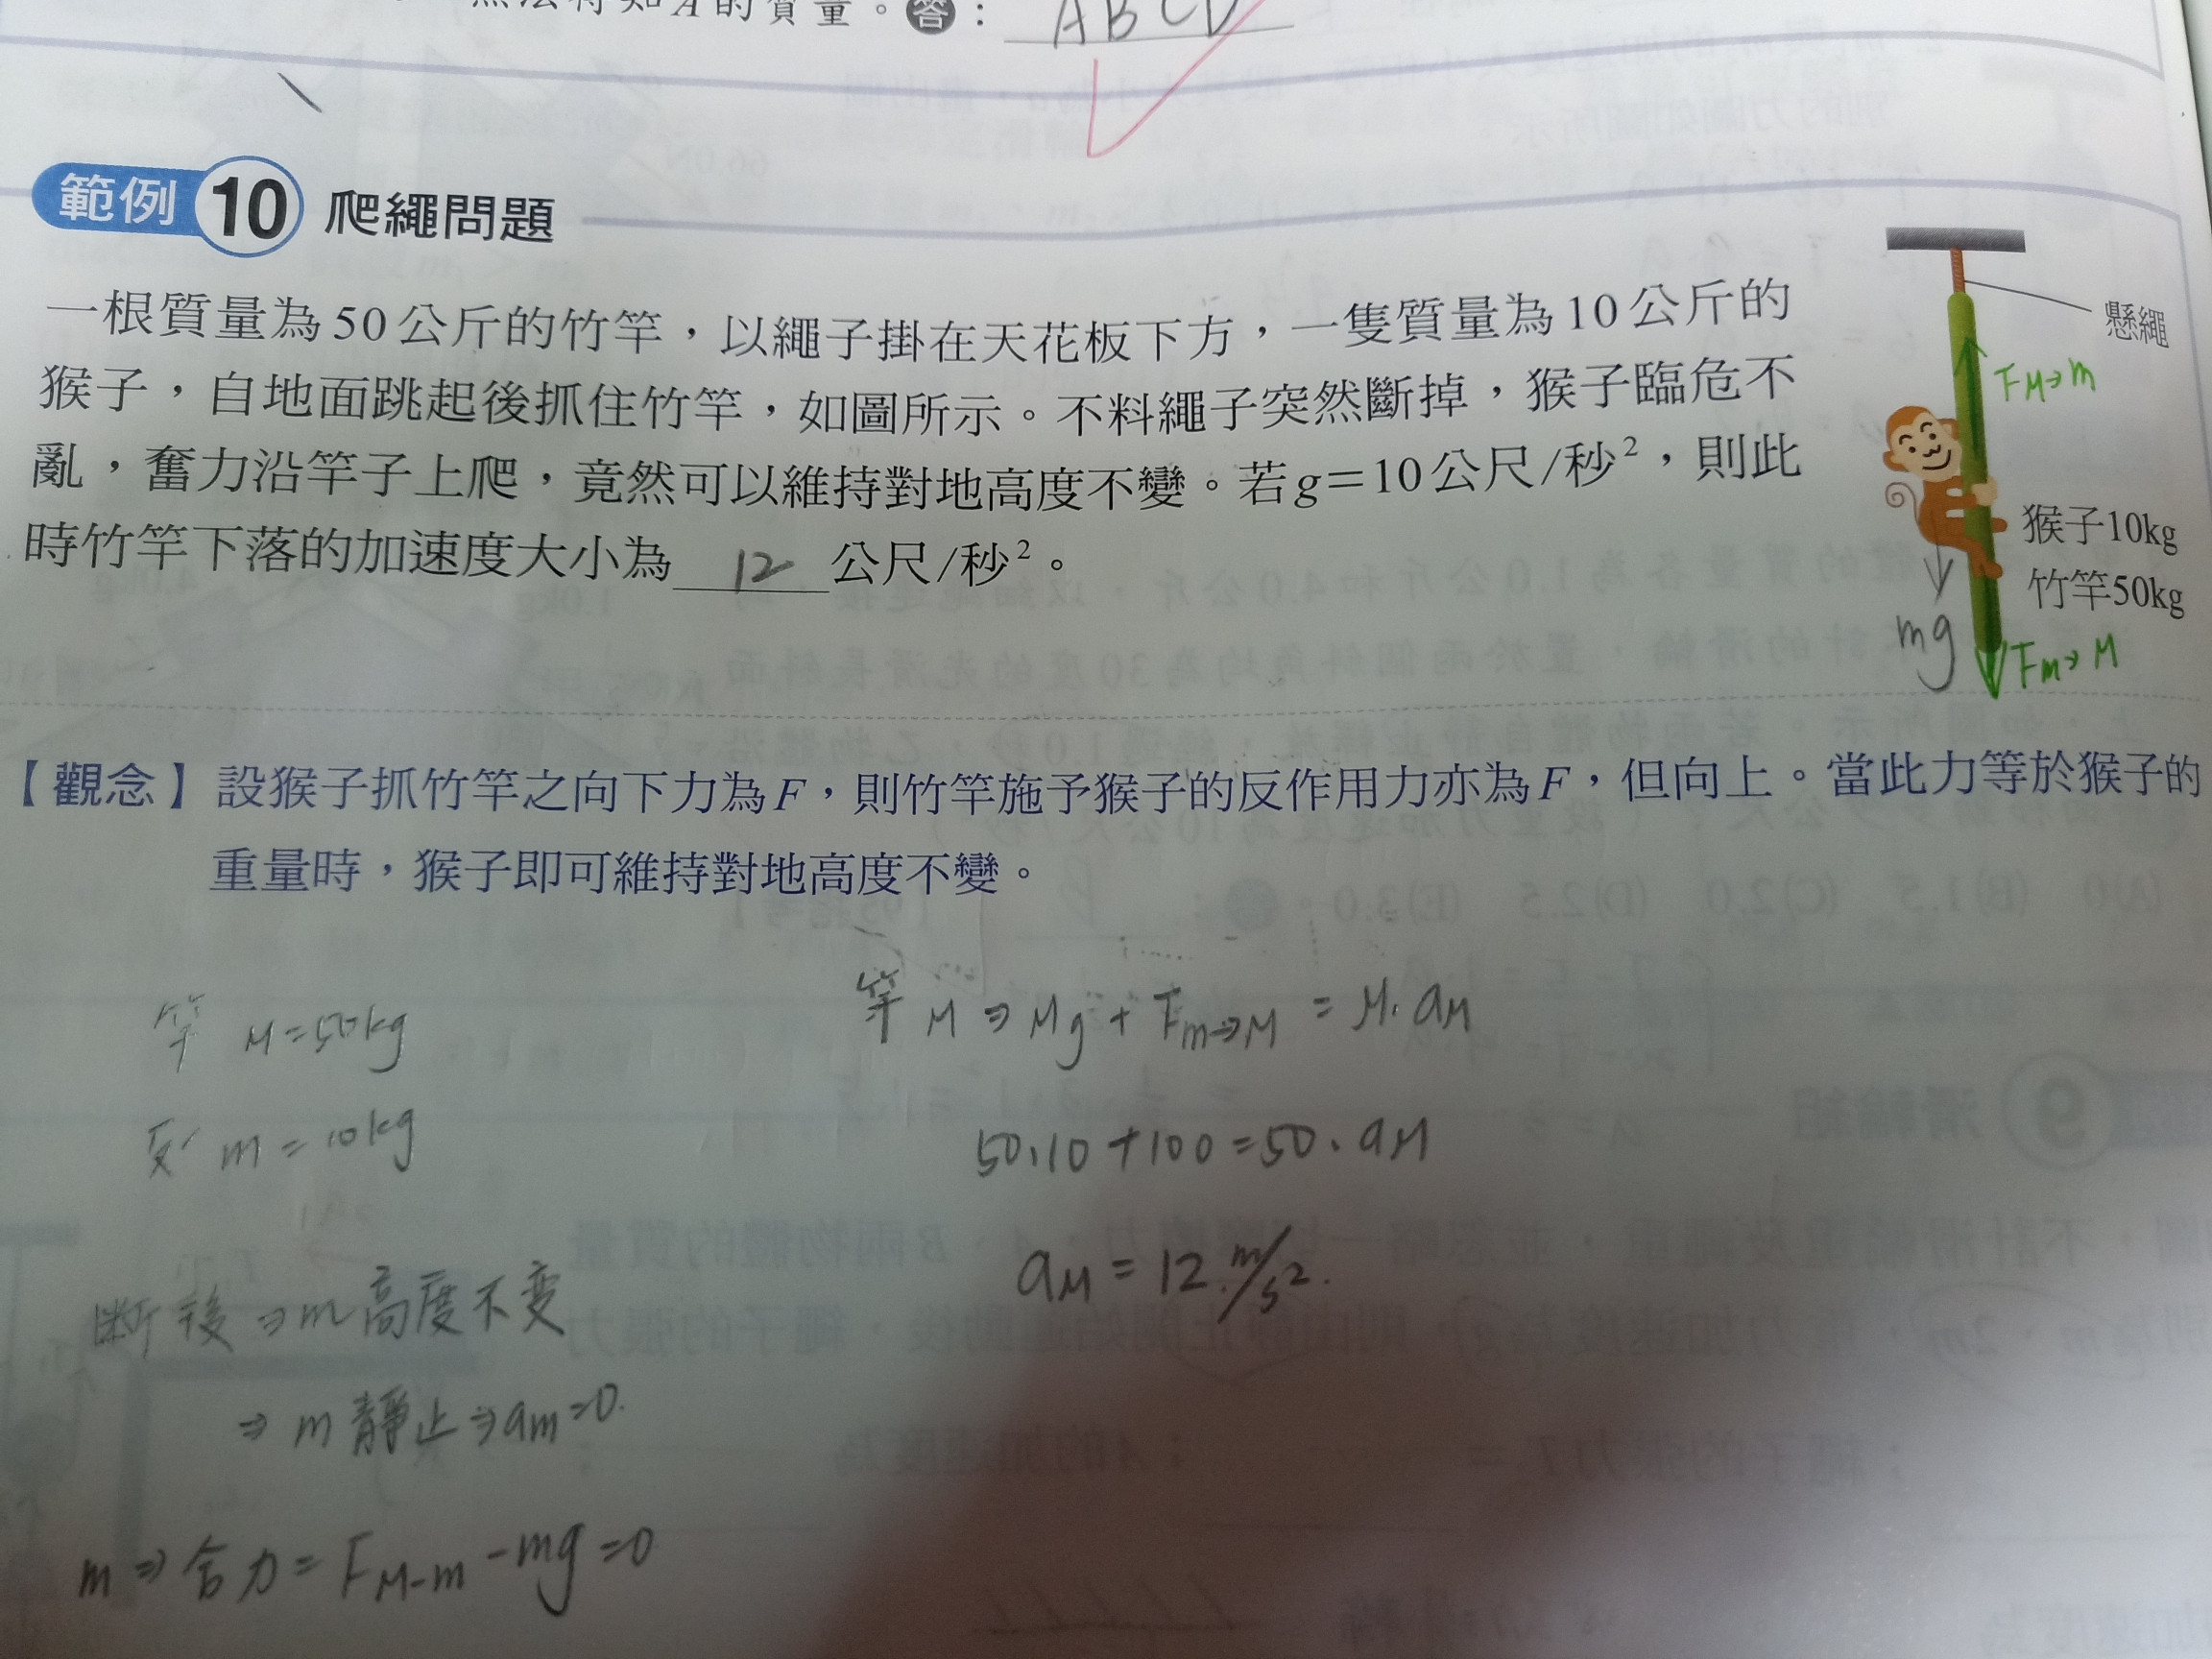 無法得知A的質量。答：ABCD
範例 10 爬繩問題
一根質量為50公斤的竹竿，以繩子掛在天花板下方，一隻質量為10公斤的
猴子，自地面跳起後抓住竹竿，如圖所示。不料繩子突然斷掉，猴子臨危不
亂，奮力沿竿子上爬，竟然可以維持對地高度不變。若g＝10公尺/秒²，則此
時竹竿下落的加速度大小為 12 公尺/秒²。
懸繩
FM→m
猴子10kg
竹竿50kg
mg
Fm→M
【觀念】設猴子抓竹竿之向下力為F，則竹竿施予猴子的反作用力亦為F，但向上。當此力等於猴子的
重量時，猴子即可維持對地高度不變。
竿 M=50kg
m=10kg
斷後⇒m高度不变
⇒m靜止⇒am=0.
m⇒合力=FM-m-mg=0
竿M⇒Mg+Fm→M=M.aM
50.10+100=50.aM
aM=12.m/s².